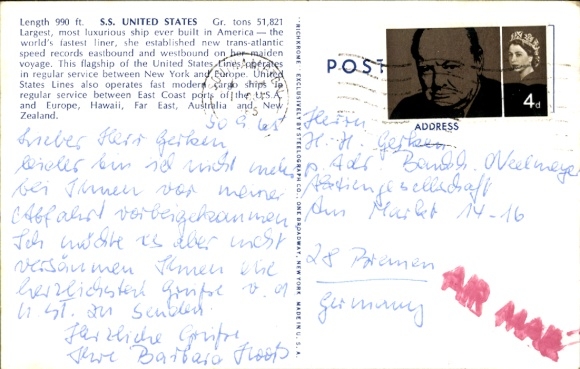 Length 990 ft. S.S. UNITED STATES Gr. tons 51,821
Largest, most luxurious ship ever built in America — the
world's fastest liner, she established new trans-atlantic
speed records eastbound and westbound on her maiden
voyage. This flagship of the United States Lines operates
in regular service between New York and Europe. United
States Lines also operates fast modern cargo ships in
regular service between East Coast ports of the U.S.A.
and Europe, Hawaii, Far East, Australia and New
Zealand.
Lieber Herr Gerken
leider bin ich nicht mehr
bei Ihnen vor meiner
Abfahrt vorbeigekommen
Ich möchte es aber nicht
versäumen Ihnen die
herzlichsten Grüße v. d
U. St. zu senden.
Herzliche Grüße
Ihre Barbara
"RICHKROME" EXCLUSIVELY BY STEELOGRAPH CO., ONE BROADWAY, NEW YORK. MADE IN U.S.A.
POST
4d
ADDRESS
Herrn
H. H. Gerken
p. Adr. Bankh. Neelmeyer
Aktiengesellschaft
Am Markt 14-16
28 Bremen
Germany
AIR MAIL